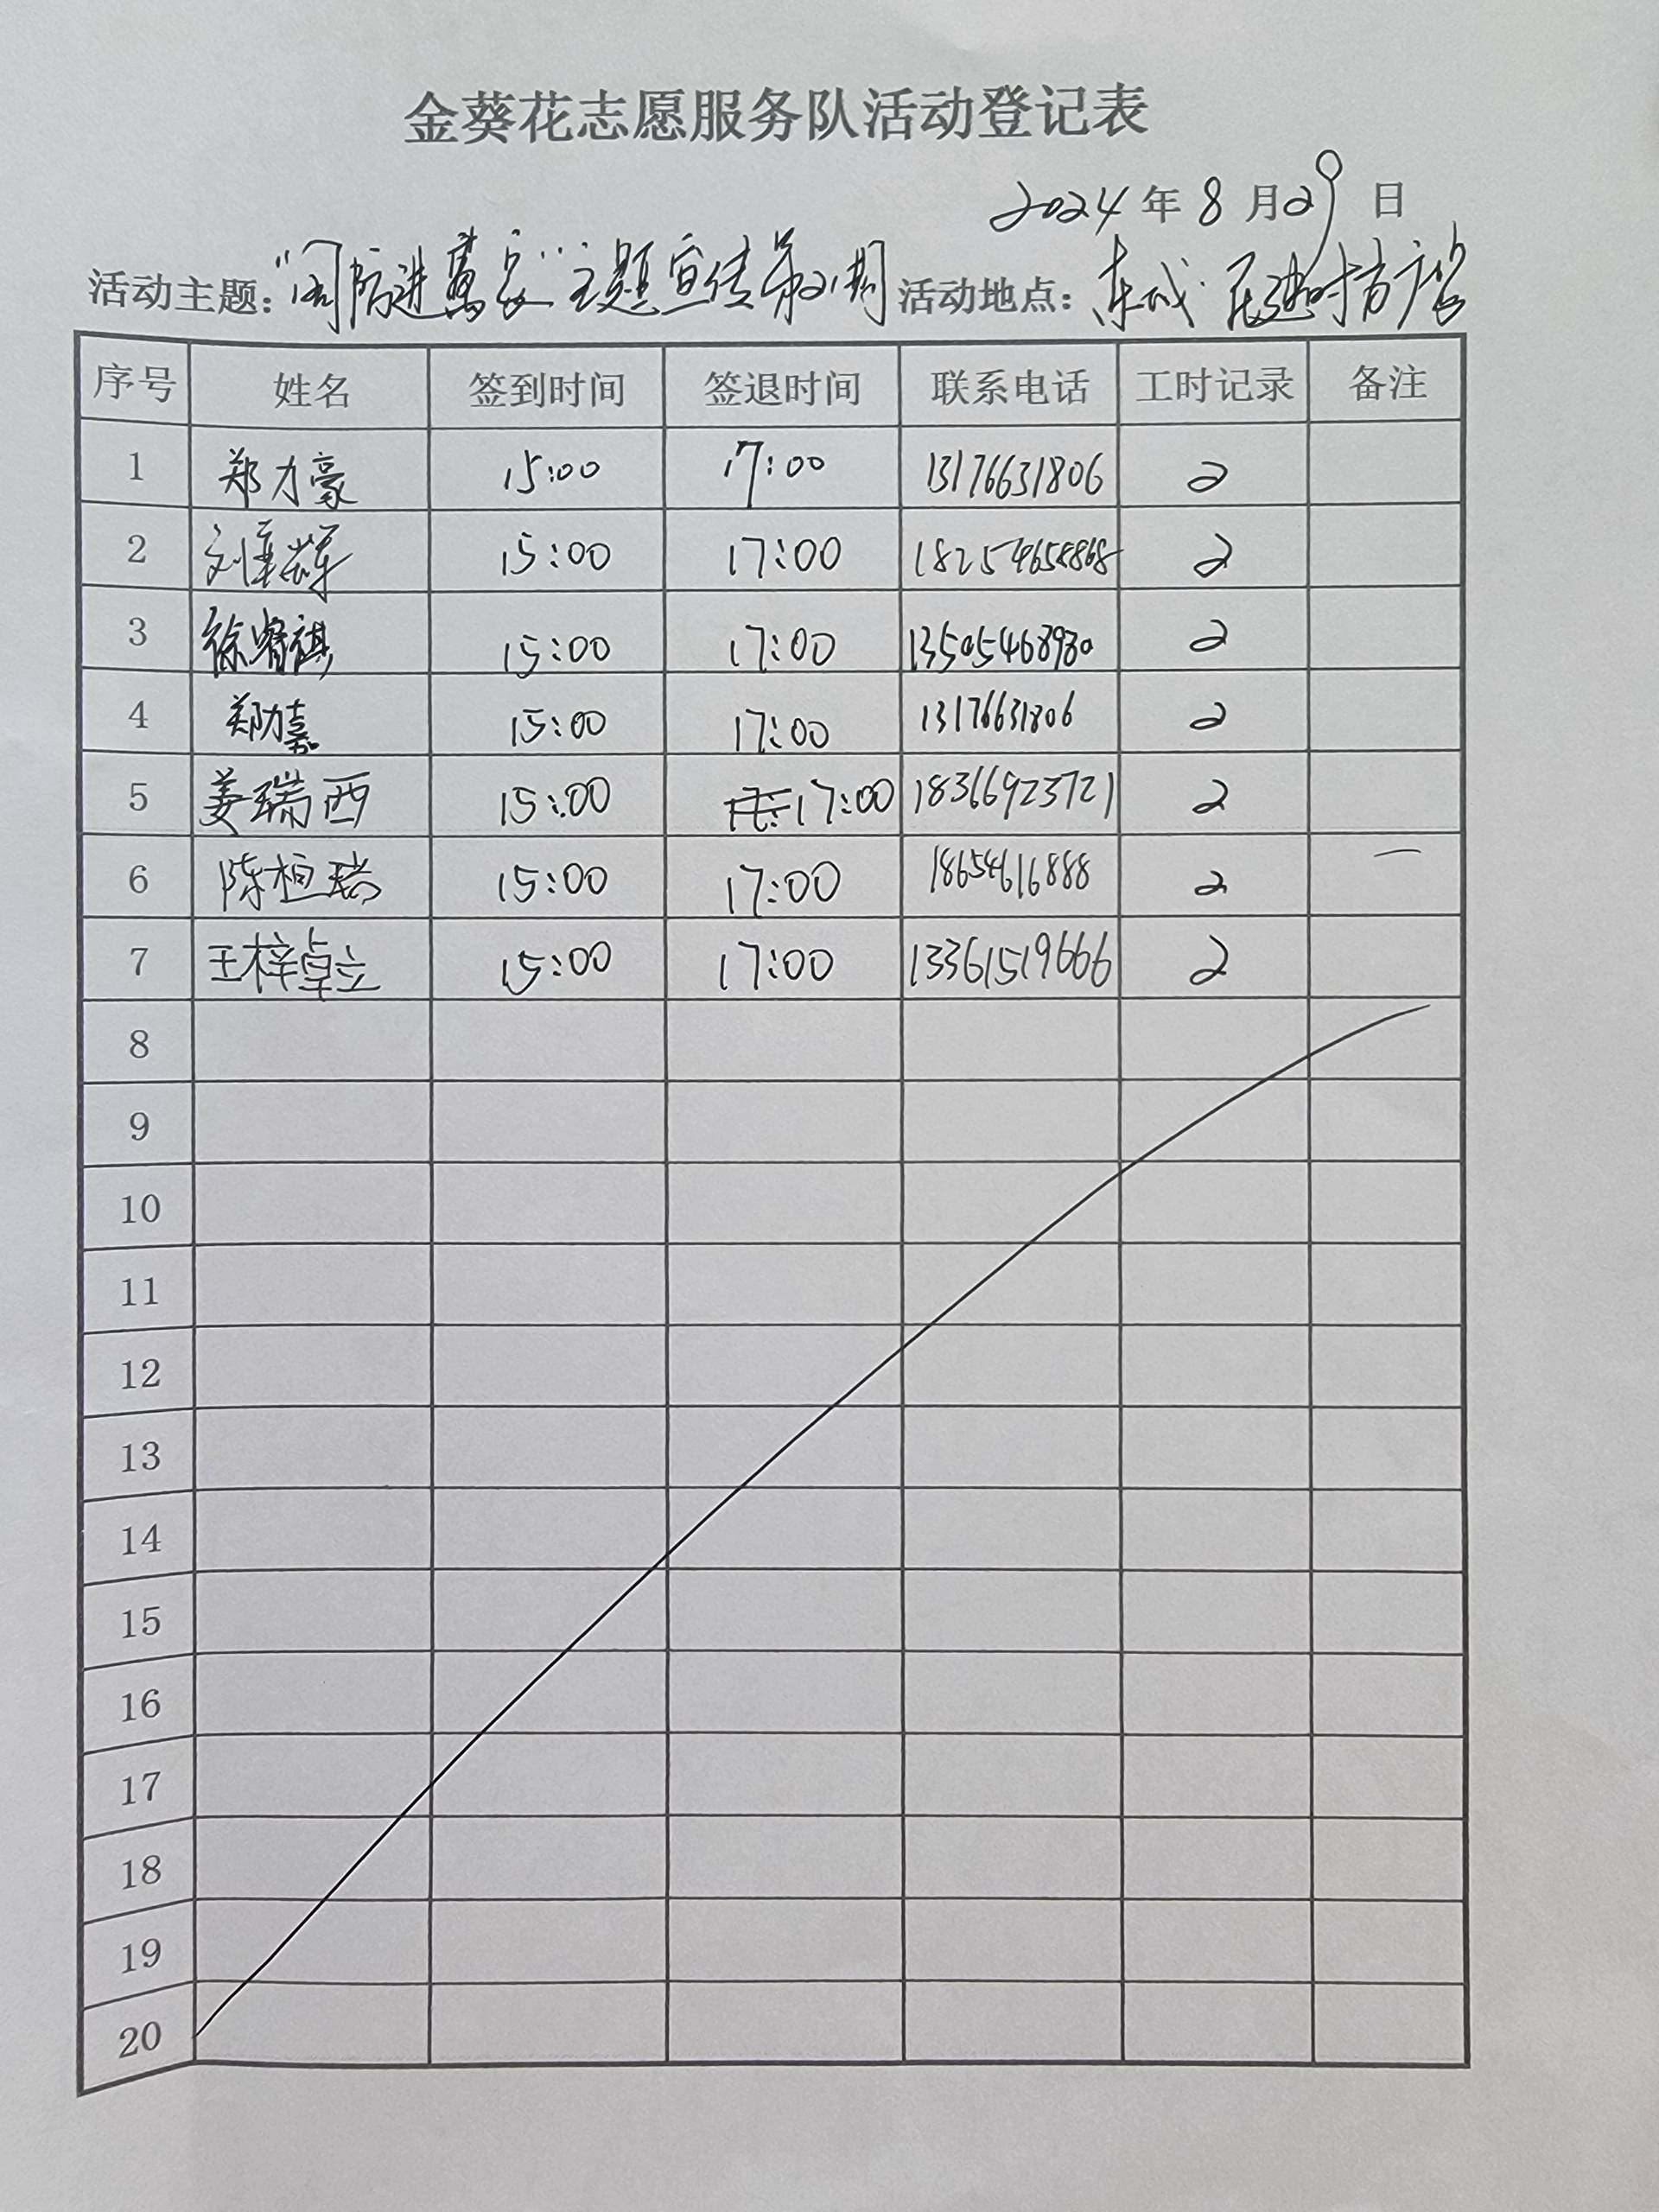 金葵花志愿服务队活动登记表
2024 年 8 月 29 日
活动主题：“ 防进萬家”主题宣传第21期 活动地点：东城·
序号 姓名 签到时间 签退时间 联系电话 工时记录 备注
1 郑力豪 15:00 17:00 13176631806 2
2 刘 15:00 17:00 18254658868 2
3 徐睿祺 15:00 17:00 13505468980 2
4 郑力嘉 15:00 17:00 13176631806 2
5 姜瑞西 15:00 17:00 18366923721 2
6 陈桓瑞 15:00 17:00 18654616888 2
7 王梓卓立 15:00 17:00 13361519666 2
8
9
10
11
12
13
14
15
16
17
18
19
20